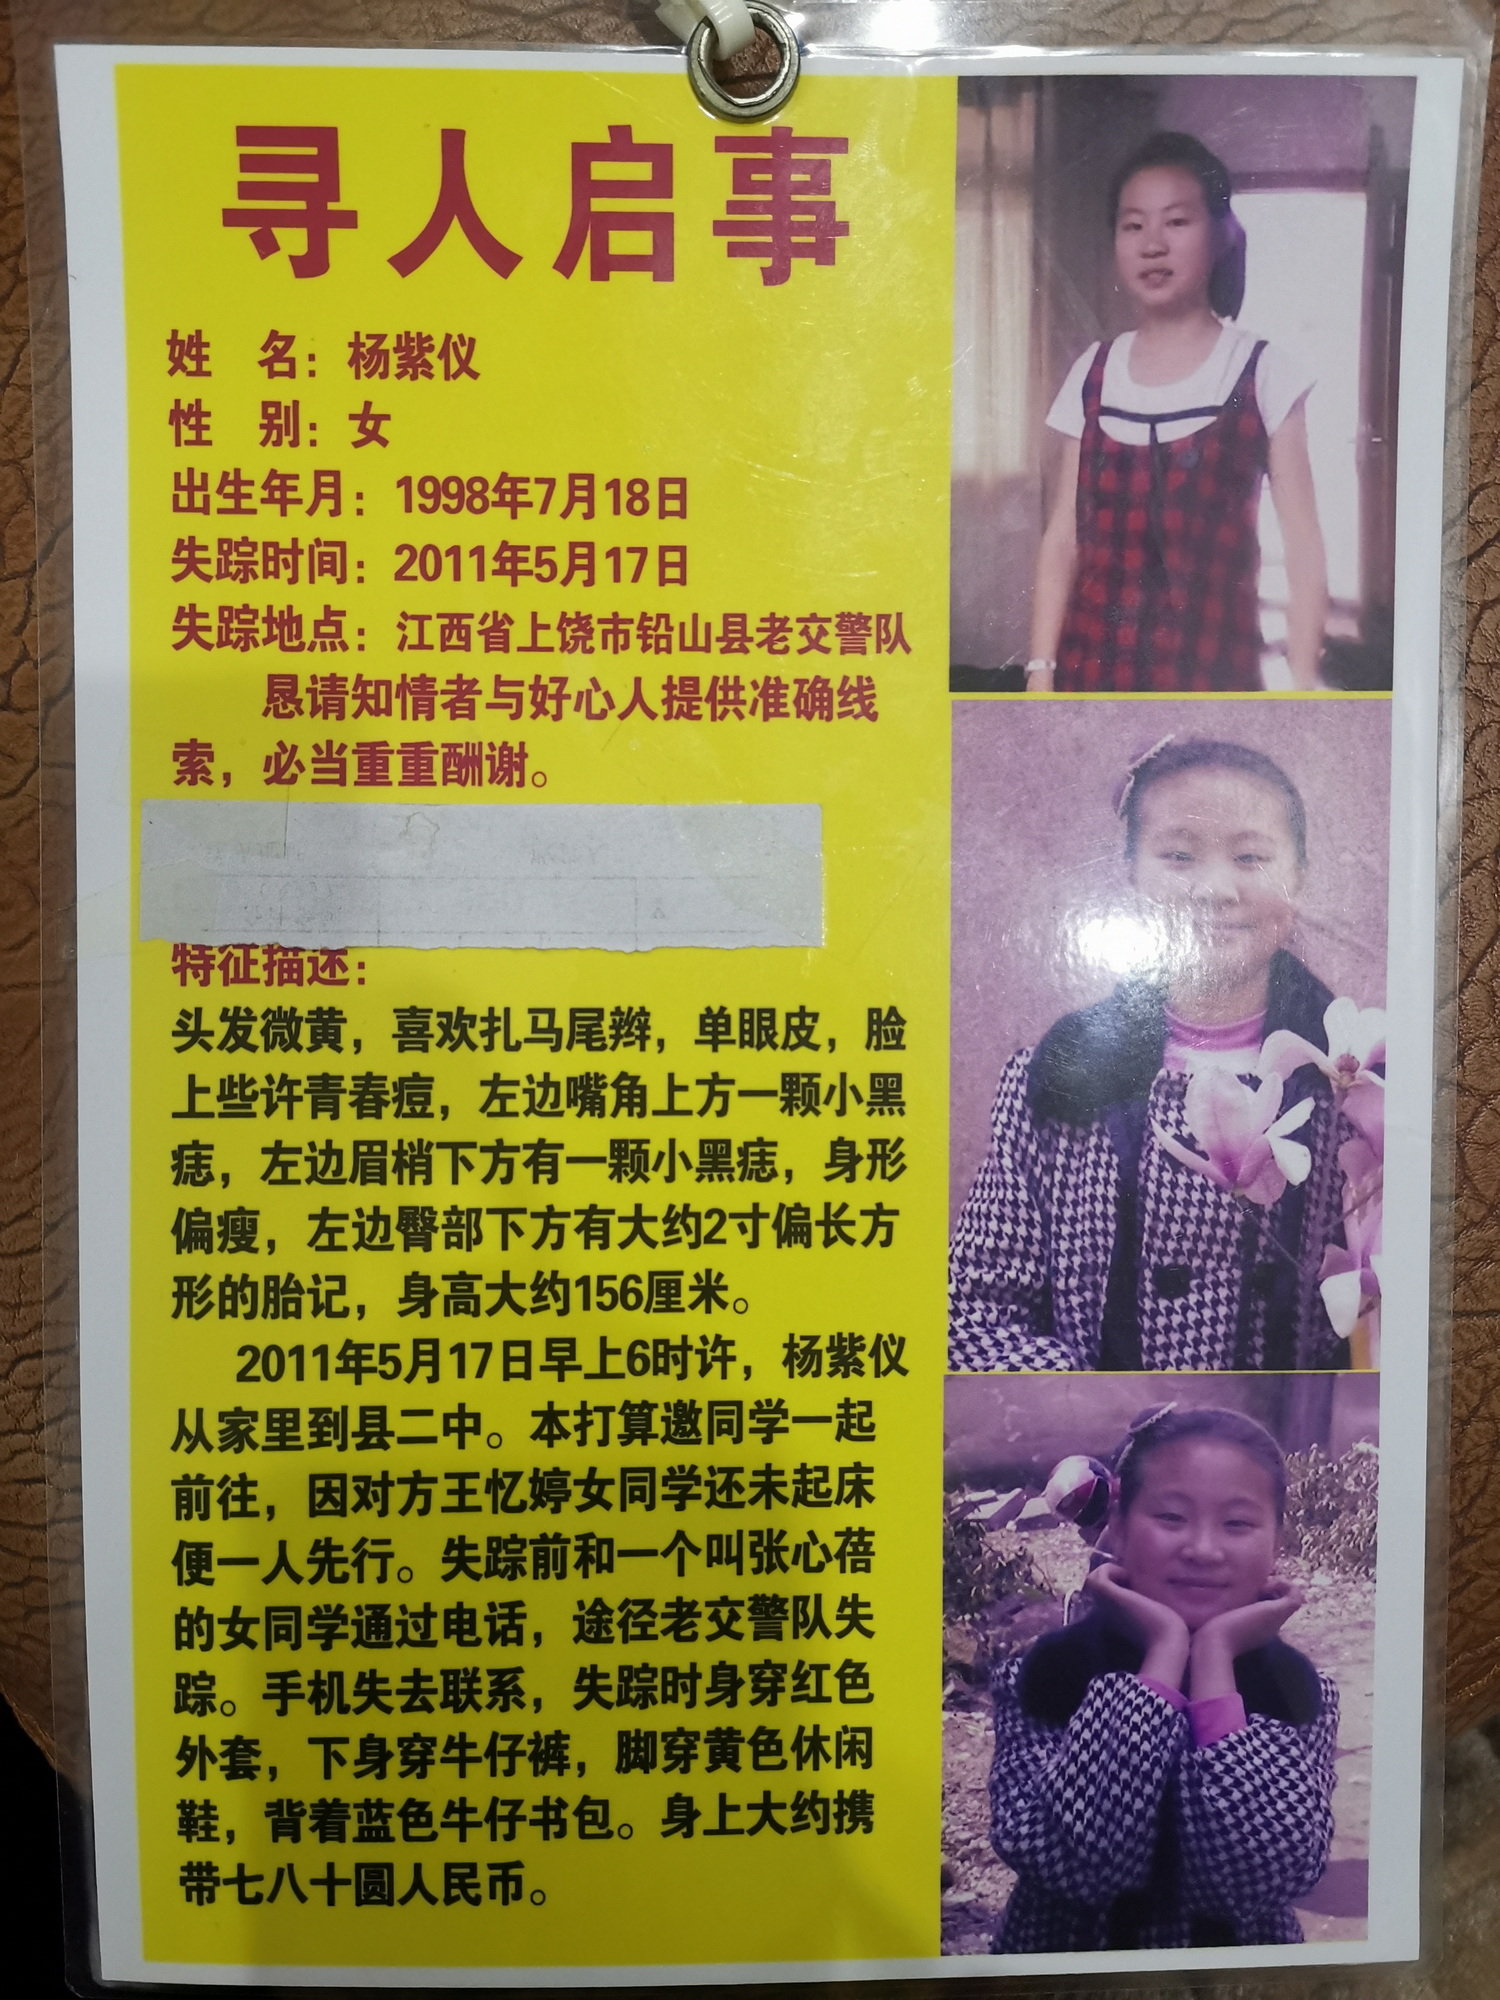 寻人启事
姓 名：杨紫仪
性 别：女
出生年月：1998年7月18日
失踪时间：2011年5月17日
失踪地点：江西省上饶市铅山县老交警队
恳请知情者与好心人提供准确线
索，必当重重酬谢。
特征描述：
头发微黄，喜欢扎马尾辫，单眼皮，脸
上些许青春痘，左边嘴角上方一颗小黑
痣，左边眉梢下方有一颗小黑痣，身形
偏瘦，左边臀部下方有大约2寸偏长方
形的胎记，身高大约156厘米。
2011年5月17日早上6时许，杨紫仪
从家里到县二中。本打算邀同学一起
前往，因对方王忆婷女同学还未起床
便一人先行。失踪前和一个叫张心蓓
的女同学通过电话，途径老交警队失
踪。手机失去联系，失踪时身穿红色
外套，下身穿牛仔裤，脚穿黄色休闲
鞋，背着蓝色牛仔书包。身上大约携
带七八十圆人民币。